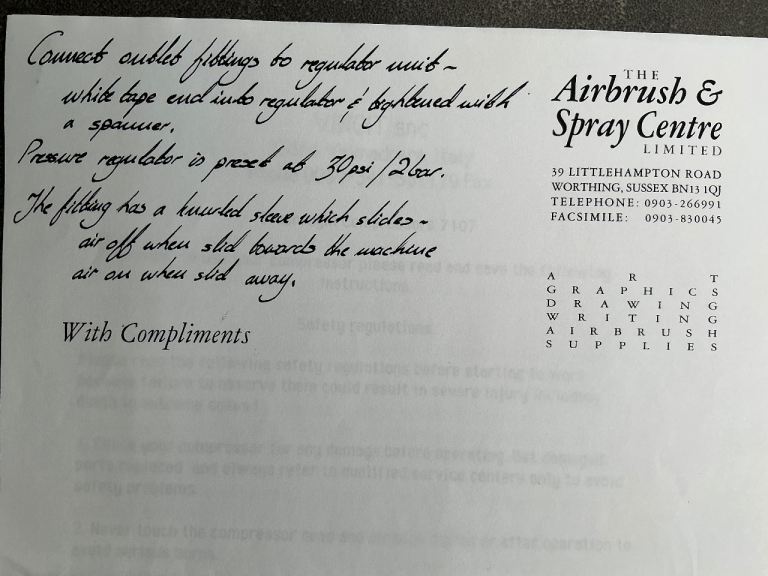 Connect outlet fittings to regulator unit -
white tape end into regulator & tightened with
a spanner.
Pressure regulator is preset at 30psi/2bar.
The fitting has a knurled sleeve which slides -
air off when slid towards the machine
air on when slid away.
With Compliments
THE
Airbrush &
Spray Centre
LIMITED
39 LITTLEHAMPTON ROAD
WORTHING, SUSSEX BN13 1QJ
TELEPHONE: 0903-266991
FACSIMILE: 0903-830045
A R T
G R A P H I C S
D R A W I N G
W R I T I N G
A I R B R U S H
S U P P L I E S
please read and save the following
instructions.
Safety regulations.
the following safety regulations before starting to work
failure to observe them could result in severe injury including
your compressor for any damage before operating.
and always refer to qualified service centers only to avoid
safety problems.
2. Never touch the compressor head and after operation to
avoid serious burns.